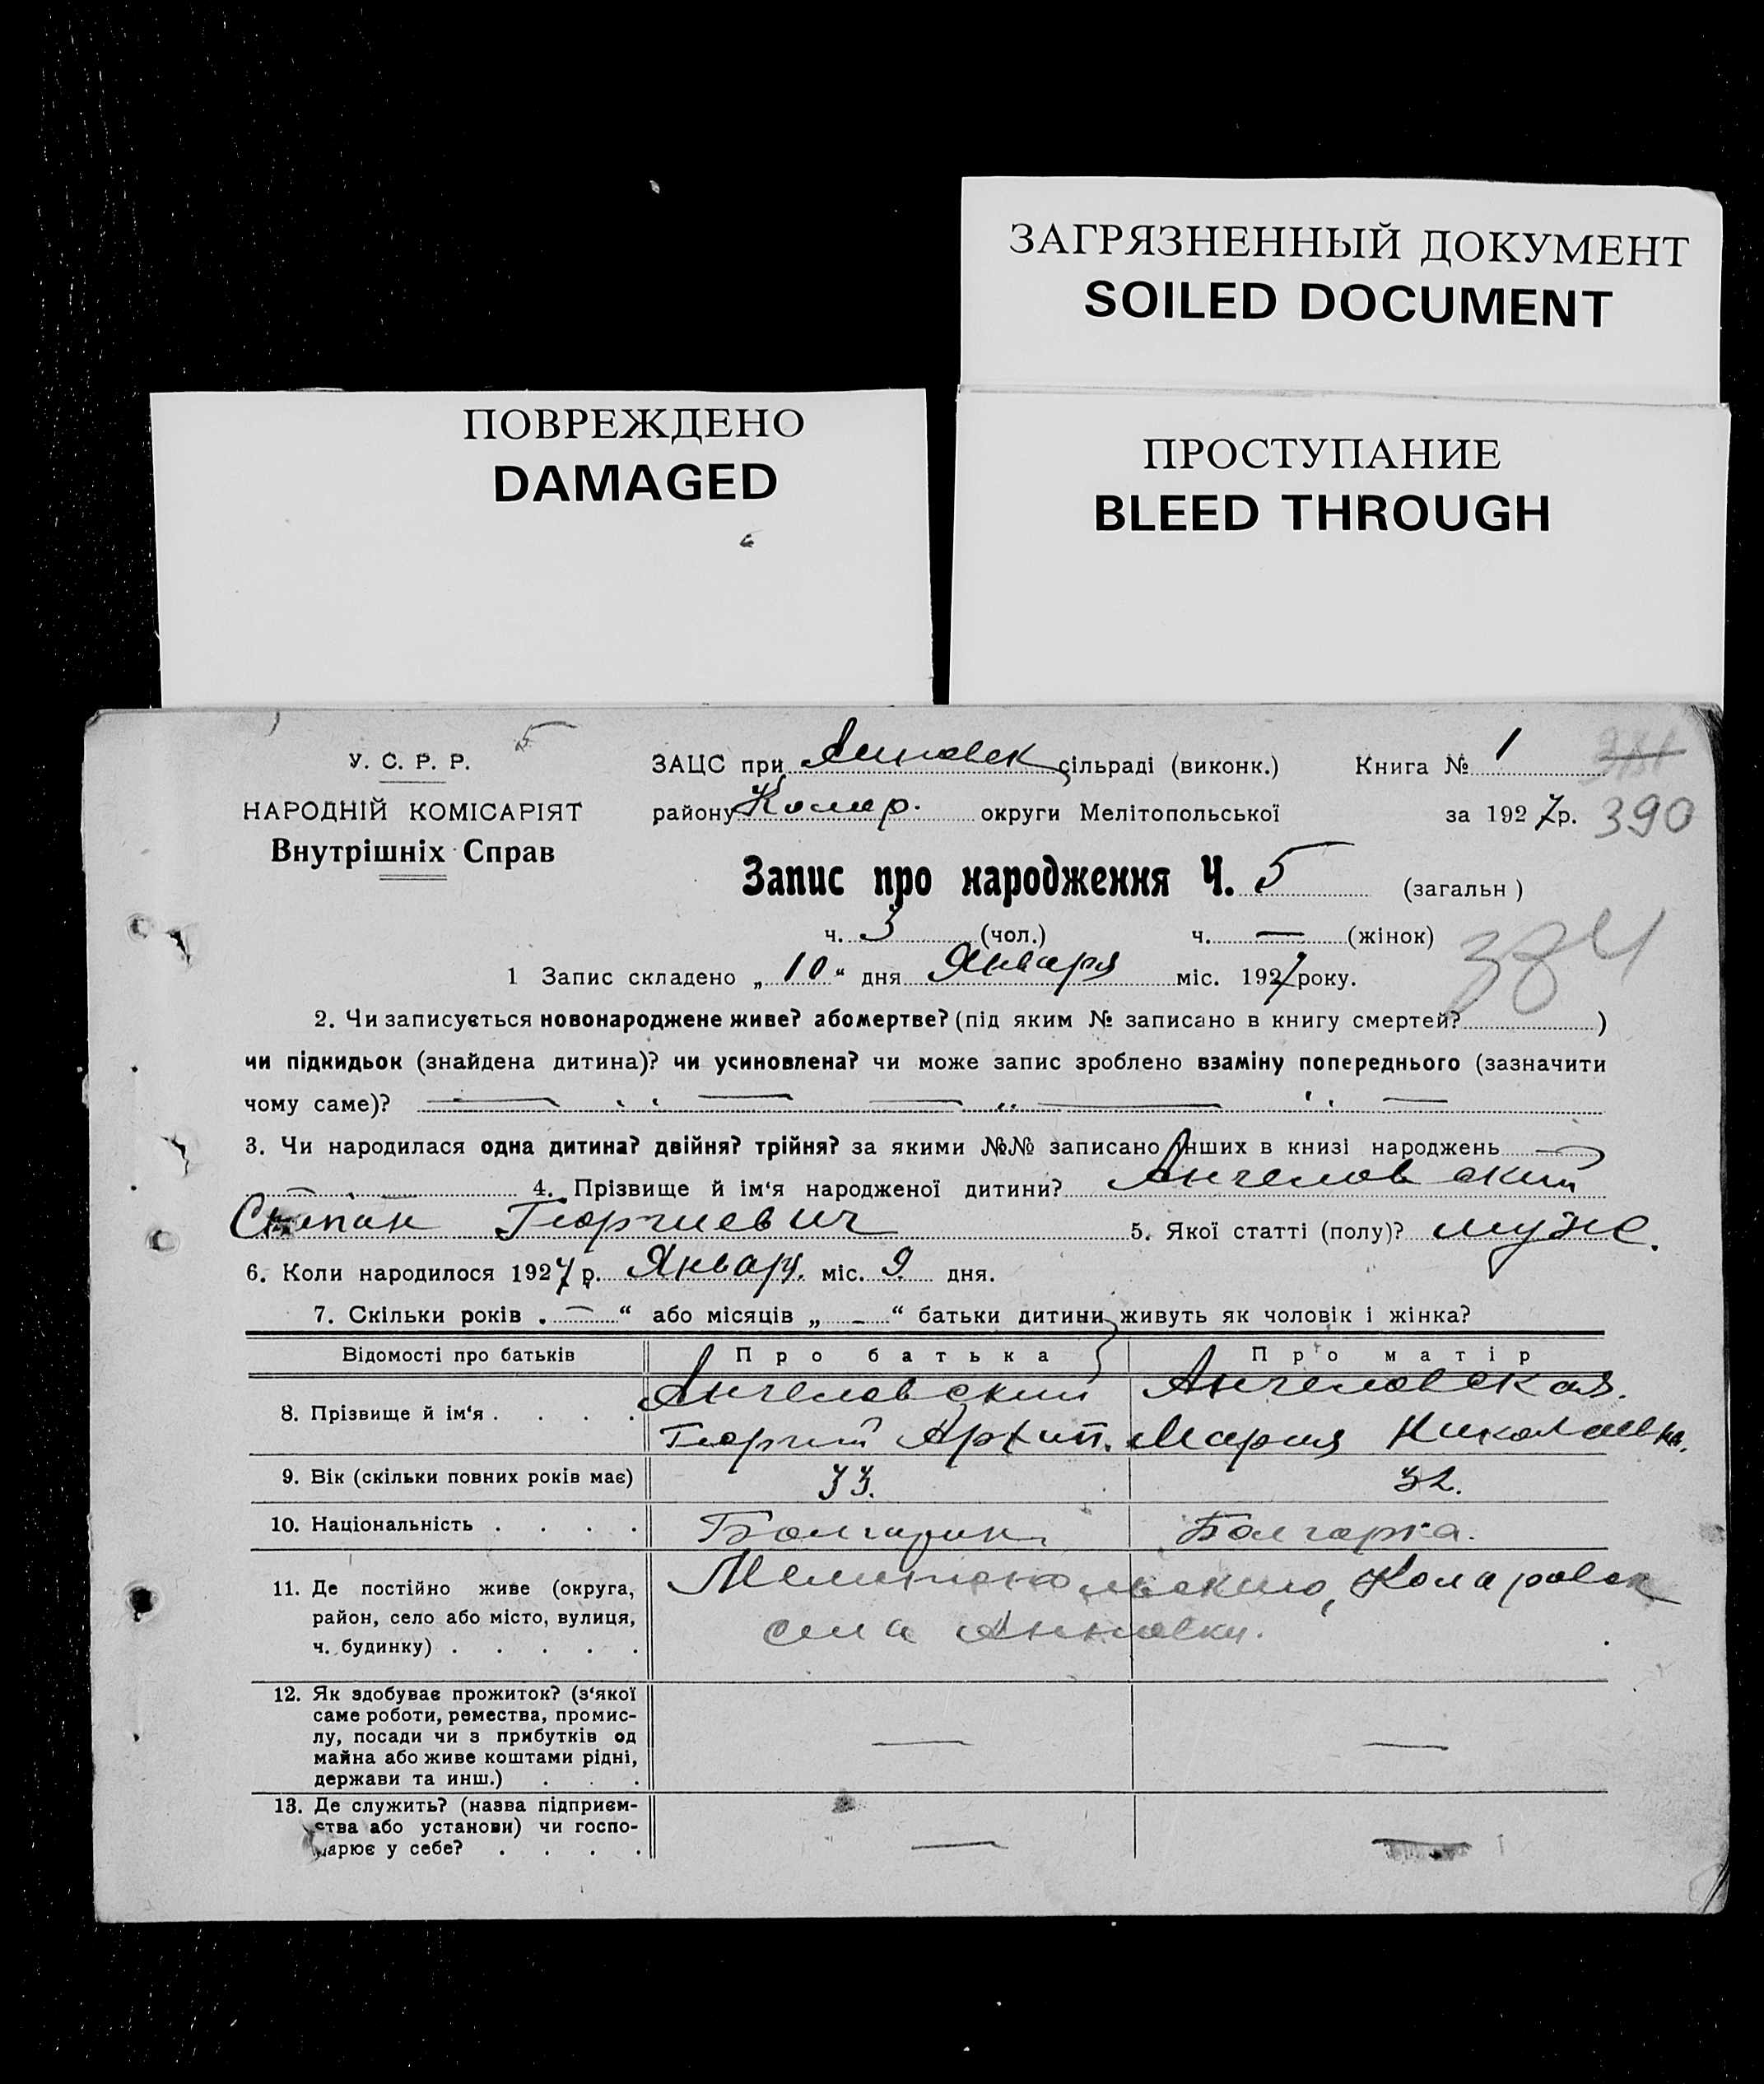 ЗАГРЯЗНЕННЫЙ ДОКУМЕНТ
SOILED DOCUMENT
ПОВРЕЖДЕНО
DAMAGED
ПРОСТУПАНИЕ
BLEED THROUGH
5
У. С. Р. Р.
НАРОДНІЙ КОМІСАРІЯТ
Внутрішніх Справ
ЗАЦС при сільраді (виконк.) Книга № 1
району Колар. округи Мелітопольської за 1927 р. 390
Запис про народження Ч. 5 (загальн)
ч. 3 (чол.) ч. — (жінок) 384
1 Запис складено „10“ дня Января міс. 1927 року.
2. Чи записується новонароджене живе? або мертве? (під яким № записано в книгу смертей? )
чи підкидьок (знайдена дитина)? чи усиновлена? чи може запис зроблено взаміну попереднього (зазначити
чому саме)?
3. Чи народилася одна дитина? двійня? трійня? за якими №№ записано інших в книзі народжень —
4. Прізвище й ім‘я народженої дитини? Ангеловский
Степан Георгиевич 5. Якої статті (полу)? муже.
6. Коли народилося 1927 р. Январ. міс. 9 дня.
7. Скільки років „ — “ або місяців „ — “ батьки дитини живуть як чоловік і жінка?
Відомості про батьків Про батька Про матір
8. Прізвище й ім‘я . . . . Ангеловский Ангеловская.
Георгий Архип. Мария Николаевна.
9. Вік (скільки повних років має) 33. 32.
10. Національність . . . . Болгарин Болгарка.
11. Де постійно живе (округа, район, село або місто, вулиця, ч. будинку) . . . . . Мелитопольского, Коларовск
села Анновки.
12. Як здобуває прожиток? (з‘якої
саме роботи, ремества, промис-
лу, посади чи з прибутків од
майна або живе коштами рідні,
держави та инш.) . . . — —
13. Де служить? (назва підприєм-
ства або установи) чи госпо-
дарює у себе? . . . . — —